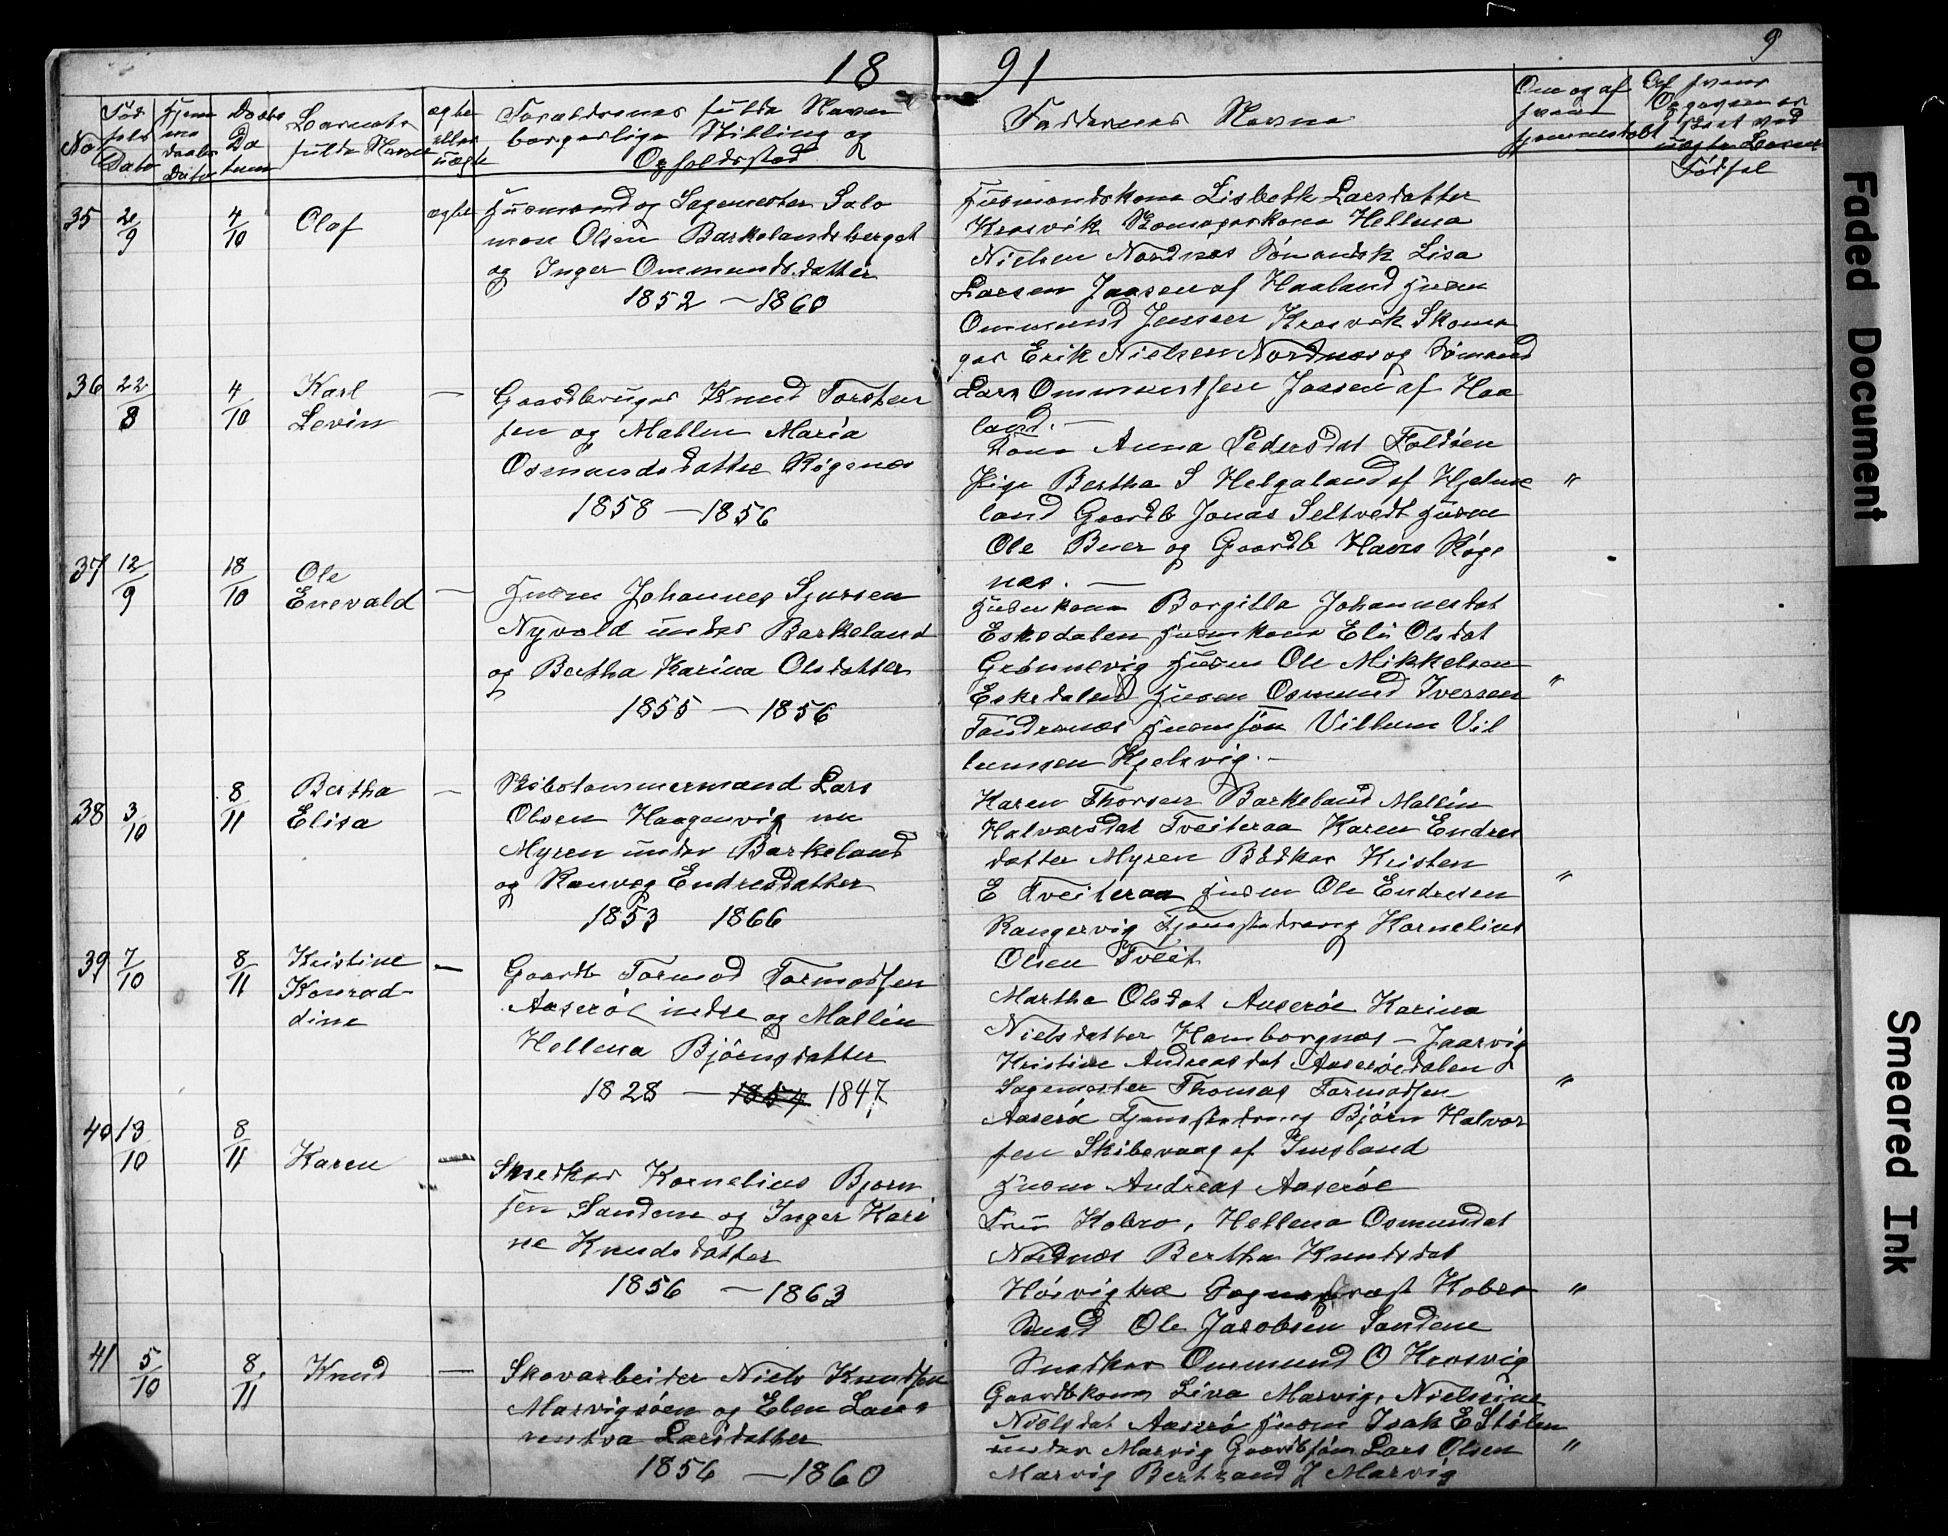 18 91
9
No
Fød
sels
Dato
Hjem
me
daabs
Dato
Daabs
Da
tum
Barnets
fulde Navn
ægte
eller
uægte
Forældrenes fulde Navn
borgerlige Stilling og
Opholdssted
Faddernes Navne
Om og af
hvem
hjemmedøbt
35 20/9 4/10 Olaf ægte
Husmand og Sagmester Salo
mon Olsen Barkelandsberget
og Inger Ommundsdatter
1852 – 1860
Husmandskone Lisbeth Larsdatter
Krosvik Skomagerkone Hellena
Nielsen Nordnæs Sømandsk Lisa
Larsen Jaasen af Haaland Husm
Ommund Jensen Krosvik Skoma
ger Erik Nielsen Nordnæs og Sømand
Lars Ommundsen Jaasen af Haa
land. –
36 22/8 4/10 Karl
Levin –
Gaardbruger Knud Torsten
sen og Mallen Maria
Osmundsdatter Røgenæs
1858 – 1856
Kone Anna Pedersdat Foldøen
Pige Bertha S Helgaland af Hjelme "
land Gaardb Jonas Seltvedt Husm
Ole Buer og Gaardb Hans Røge
næs. –
37 12/9 18/10 Ole
Enevald –
Husm Johannes Sjursen
Nyvold under Barkeland
og Bertha Karina Olsdatter
1855 – 1856
Husmkone Borgilla Johannesdat
Eskedalen Husmkone Eli Olsdat
Grønnevig Husm Ole Mikkelsen
Eskedalen Husm Osmund Iversen "
Tondrenæs Husmsøn Villum Vil
lumsen Kjelsvig. –
38 3/10 8/11 Bertha
Elisa –
Skibstømmermand Lars
Olsen Haagenvig nu
Myren under Barkeland
og Ranveg Endresdatter
1853 1866
Karen Thorsen Barkeland Mallin
Halvorsdat Tveiteraa Karen Endres
datter Myren Bødker Kristen
E Tveiteraa Husm Ole Endresen "
Rangervig Tjenestedreng Kornelius
Olsen Tveit
39 7/10 8/11 Kristine
Konrad-
dine –
Gaardb Tormod Tormodsen
Aaserøe indre og Mallin
Hellena Bjørnsdatter
1828 – 1854 1847
Martha Olsdat Aaserøe Karina
Nielsdatter Hamborgnæs – Jaarvig
Kristine Andreasdat Aaserøedalen
Sagemester Thomas Tormodsen "
Aaserøe Tjenestedreng Bjørn Halvor
sen Skibevaag af Imsland
Husm Andreas Aaserøe
40 13/10 8/11 Karen –
Snedker Kornelius Bjørn
sen Sandene og Inger Kari
ne Knudsdatter
1856 – 1863
Fru Kobro, Hellena Osmundat
Nordnæs Bertha Knudsdat
Høivigtræ Sognepræst Kobro "
Smed Ole Jacobsen Sandene
Snedker Ommund O Krosvig
41 5/10 8/11 Knud –
Skovarbeider Niels Knudsen
Marvigsøen og Elen Lau
rentva Larsdatter
1856 – 1860
Gaardbkone Liva Marvig, Nielsine
Nielsdat Aaserø Husm Isak E Stølen
under Marvig Gaardbsøn Lars Olsen "
Marvig Bertrand J Marvig
Faded Document
Smeared Ink